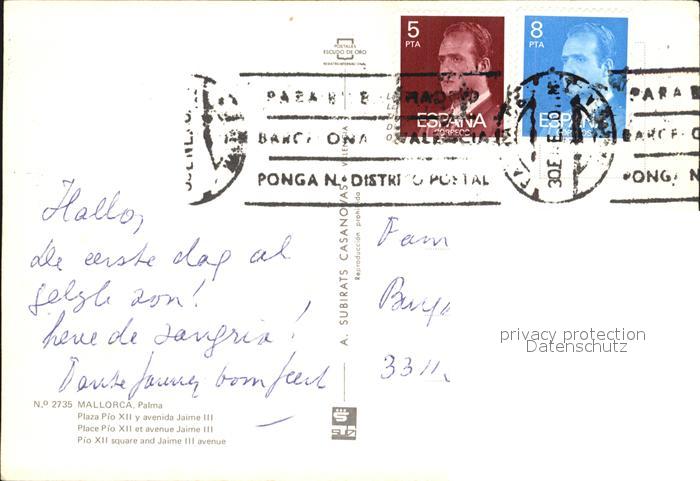 POSTALES
ESCUDO DE ORO
5
PTA
ESPAÑA
CORREOS
8
PTA
ESPAÑA
CORREOS
PARA MADRID
BARCELONA VALENCIA
PONGA N.º DISTRITO POSTAL
PARA
BARCELO
PONGA N
30 ENE
Hallo,
De eerste dag al
zon!
leve de sangria!
Fam
33
A. SUBIRATS CASANOVAS VALENCIA
Reproducción prohibida
privacy protection
Datenschutz
N.º 2735 MALLORCA, Palma
Plaza Pío XII y avenida Jaime III
Place Pío XII et avenue Jaime III
Pío XII square and Jaime III avenue